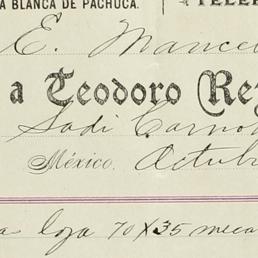 A BLANCA DE PACHUCA. TELEF
E. Mance
a Teodoro Re
Sadi Carno
México, Octub
a loza 70 X 35 meca